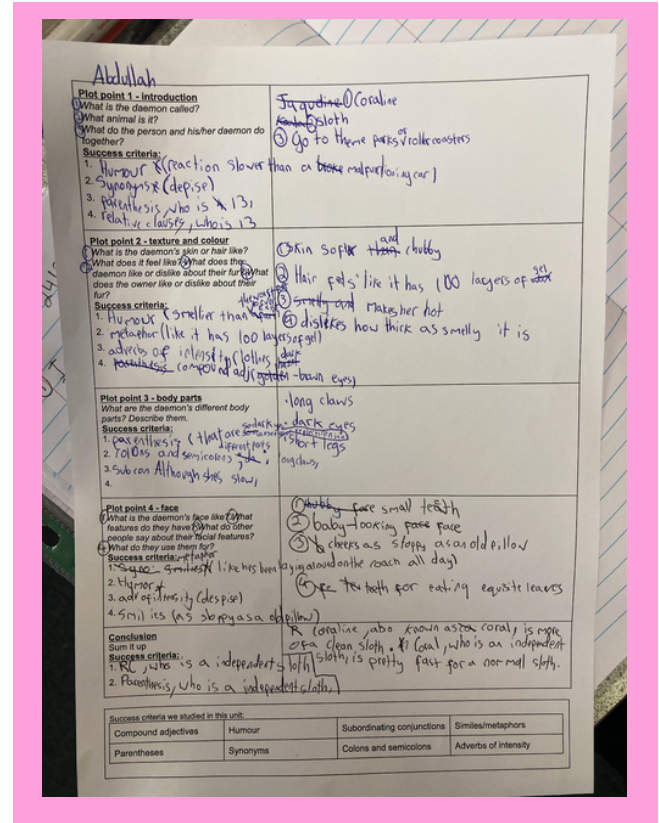 Abdullah
Plot point 1 - introduction
What is the daemon called?
What animal is it?
What do the person and his/her daemon do
together?
Success criteria:
1. Humour (reaction slower than a broke car)
2. Synonyms (depise)
3. parenthesis, who is 13,
4. relative clauses, who is 13
① Coraline
② sloth
③ Go to theme parks or rollercoasters
Plot point 2 - texture and colour
① What is the daemon's skin or hair like?
② What does it feel like? ③ What does the
daemon like or dislike about their fur? ④ What
does the owner like or dislike about their
fur?
Success criteria:
1. Humour (smellier than
2. metaphor (like it has 100 layers of gel)
3. adverbs of intensity
4. parenthesis compound adj (golden -bown eyes)
① skin soft and chubby
② Hair like it has 100 layers of gel
③ smelly and makes her hot
④ dislikes how thick as smelly it is
Plot point 3 - body parts
What are the daemon's different body
parts? Describe them.
Success criteria:
1. parenthesis (that are so dark
2. colons and semicolons different parts; long claws,
3. Sub con Although shes slow,
4.
· long claws
· dark eyes
· short legs
Plot point 4 - face
① What is the daemon's face like? ② What
features do they have? ③ What do other
people say about their facial features?
④ What do they use them for?
Success criteria: metaphor
1. Smilies like hes been on the roach all day)
2. Humor
3. adv of intesity (despise)
4. Smilies (as sloppy as a old pillow)
① chubby face small teeth
② baby-looking face face
③ cheeks as sloppy as an old pillow
④ teeth for eating equisite leaves
Conclusion
Sum it up
Success criteria:
1. RC, who is a independent sloth
2. Parenthesis, who is a independent sloth,
Coraline, also known as coral, is more
of a clean sloth. Coral, who is an independent
sloth, is pretty fast for a normal sloth.
Success criteria we studied in this unit:
Compound adjectives Humour Subordinating conjunctions Similes/metaphors
Parentheses Synonyms Colons and semicolons Adverbs of intensity